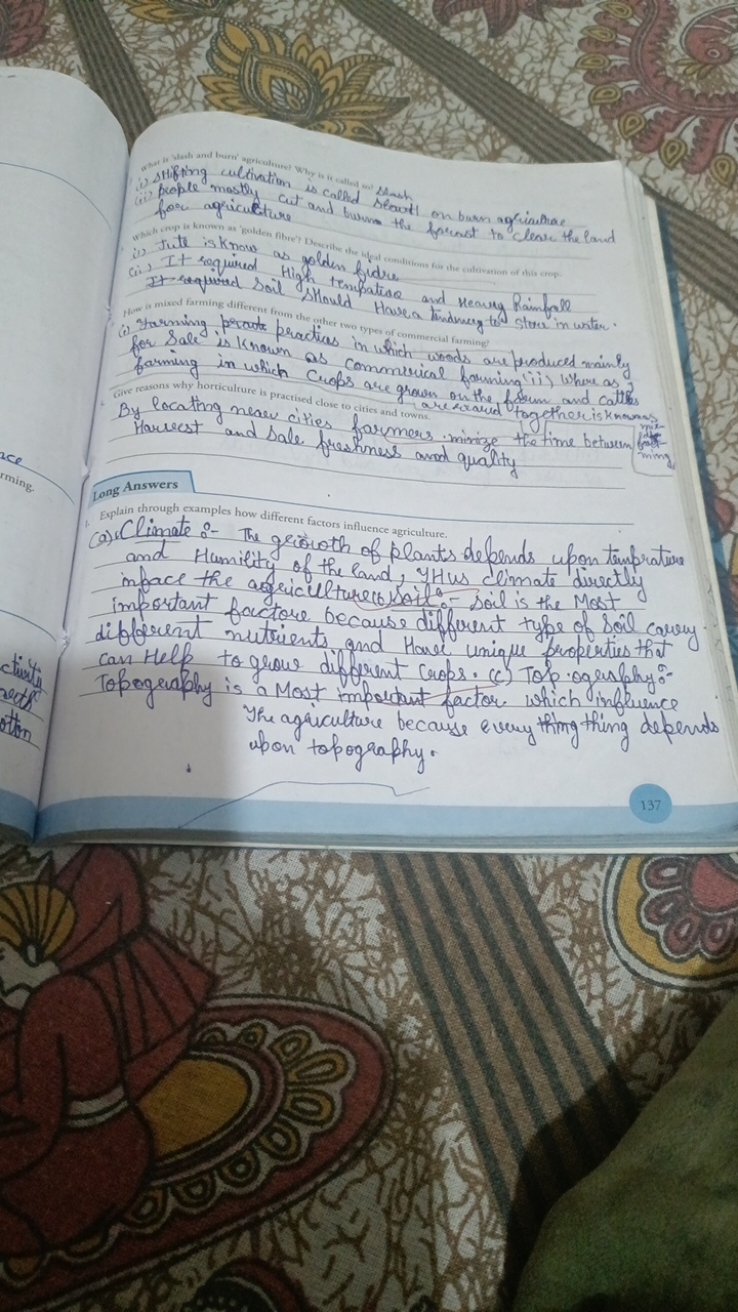 What is 'slash and burn' agriculture? Why is it called so?
(i) Shifting cultivation is called Slash on burn agriculture
(ii) people mostly cut and burn the forest to clear the land
for agriculture
Which crop is known as 'golden fibre'? Describe the ideal conditions for the cultivation of this crop.
(i) Jute is know as golden fidre
(ii) It required High tempatise and Heavey Rainfall
It required Soil Should Have a tendency to store in water.
How is mixed farming different from the other two types of commercial farming?
(i) Farming practices in which woods are produced mainly
for Sale is Known as commerical farming (ii) where as
farming in which Crops are grown on the farm and cattles
are reared together is known as
mixed farming
Give reasons why horticulture is practised close to cities and towns.
By locating near cities farmers minize the time between
Harvest and Sale freshness and quality
Long Answers
Explain through examples how different factors influence agriculture.
(a) Climate :- The growth of plants depends upon temprature
and Humility of the land, THus climate directly
inpace the agriculture (b) Soil :- Soil is the Most
important factore because different type of Soil carey
different nutrients and Have unique properties that
can Help to grow different Crops. (c) Top.ography :-
Topography is a Most important factor which influence
The agriculture because every thing depends
upon topography.
137
ace
rming.
ctivity
otton